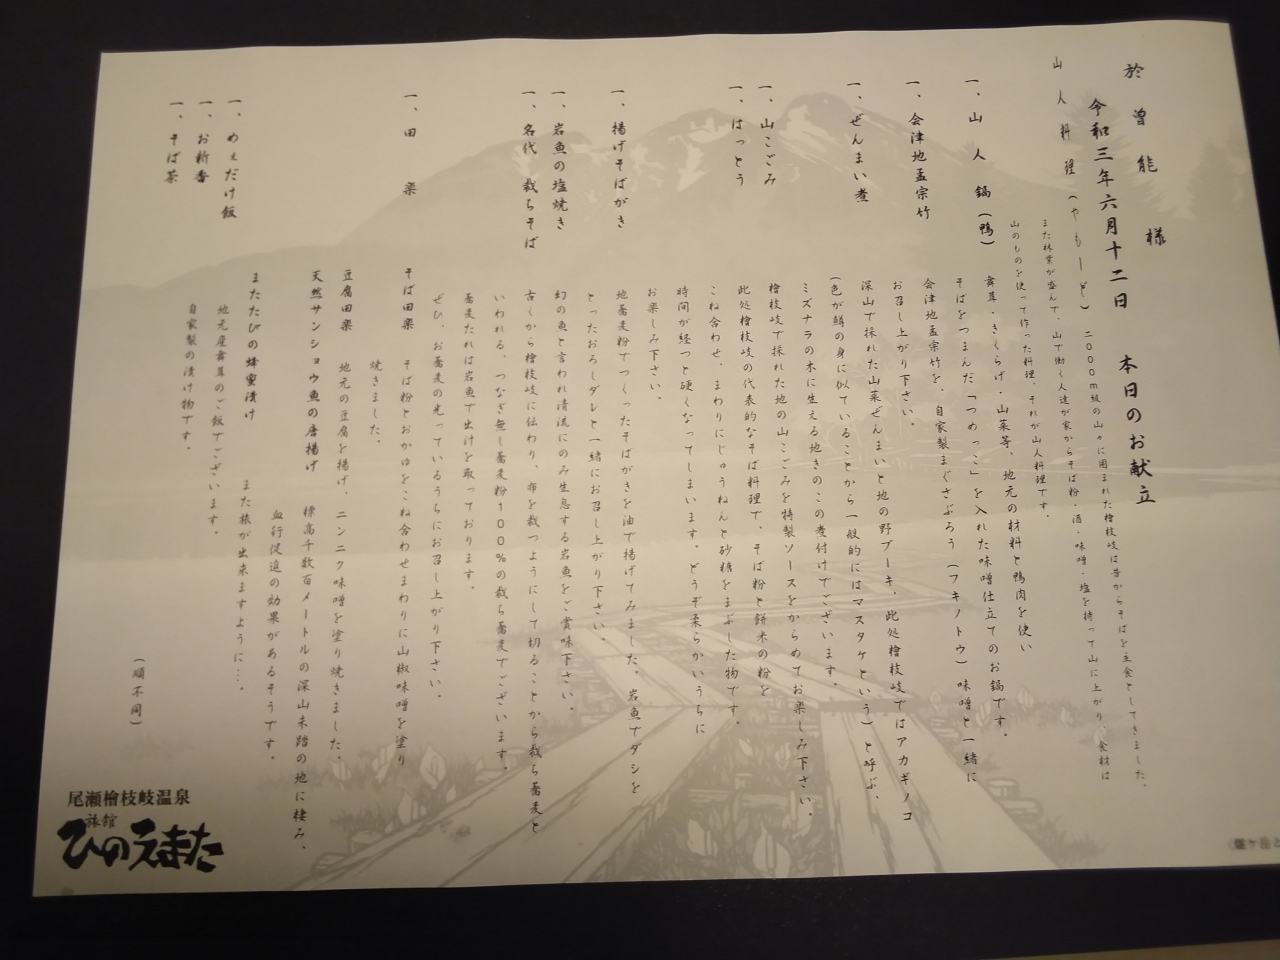 於曽能 様
令和三年六月十二日 本日のお献立
山人料理(やもーど) 二〇〇〇m級の山々に囲まれた檜枝岐は昔からそばを主食としてきました。
また林業が盛んで、山で働く人達が家からそば粉・酒・味噌・塩を持って山に上がり、食材は
山のものを使って作った料理、それが山人料理です。
一、山人鍋(鴨) 舞茸・きくらげ・山菜等、地元の材料と鴨肉を使い
そばをつまんだ「つめっこ」を入れた味噌仕立てのお鍋です。
一、会津地孟宗竹 会津地孟宗竹を、自家製まぐさぶろう(フキノトウ)味噌と一緒に
お召し上がり下さい。
一、ぜんまい煮 深山で採れた山菜ぜんまいと地の野ブーキ、此処檜枝岐ではアカギノコ
(色が鱒の身に似ていることから一般的にはマスタケという)と呼ぶ、
ミズナラの木に生える地きのこの煮付けでございます。
一、山こごみ 檜枝岐で採れた地の山こごみを特製ソースをからめてお楽しみ下さい。
一、はっとう 此処檜枝岐の代表的なそば料理で、そば粉と餅米の粉を
こね合わせ、まわりにじゅうねんと砂糖をまぶした物です。
時間が経つと硬くなってしまいます。どうぞ柔らかいうちに
お楽しみ下さい。
一、揚げそばがき 地蕎麦粉でつくったそばがきを油で揚げてみました。岩魚でダシを
とったおろしダレと一緒にお召し上がり下さい。
一、岩魚の塩焼き 幻の魚と言われ清流にのみ生息する岩魚をご賞味下さい。
一、名代 裁ちそば 古くから檜枝岐に伝わり、布を裁つようにして切ることから裁ち蕎麦と
いわれる、つなぎ無し蕎麦粉100%の裁ち蕎麦でございます。
蕎麦たれは岩魚で出汁を取っております。
ぜひ、お蕎麦の光っているうちにお召し上がり下さい。
一、田楽 そば田楽 そば粉とおかゆをこね合わせまわりに山椒味噌を塗り
焼きました。
豆腐田楽 地元の豆腐を揚げ、ニンニク味噌を塗り焼きました。
天然サンショウ魚の唐揚げ 標高千数百メートルの深山未踏の地に棲み、
血行促進の効果があるそうです。
またたびの蜂蜜漬け また旅が出来ますように…。
一、めぇだけ飯 地元産舞茸のご飯でございます。
一、お新香 自家製の漬け物です。
一、そば茶
(順不同)
尾瀬檜枝岐温泉
旅館
ひのえまた